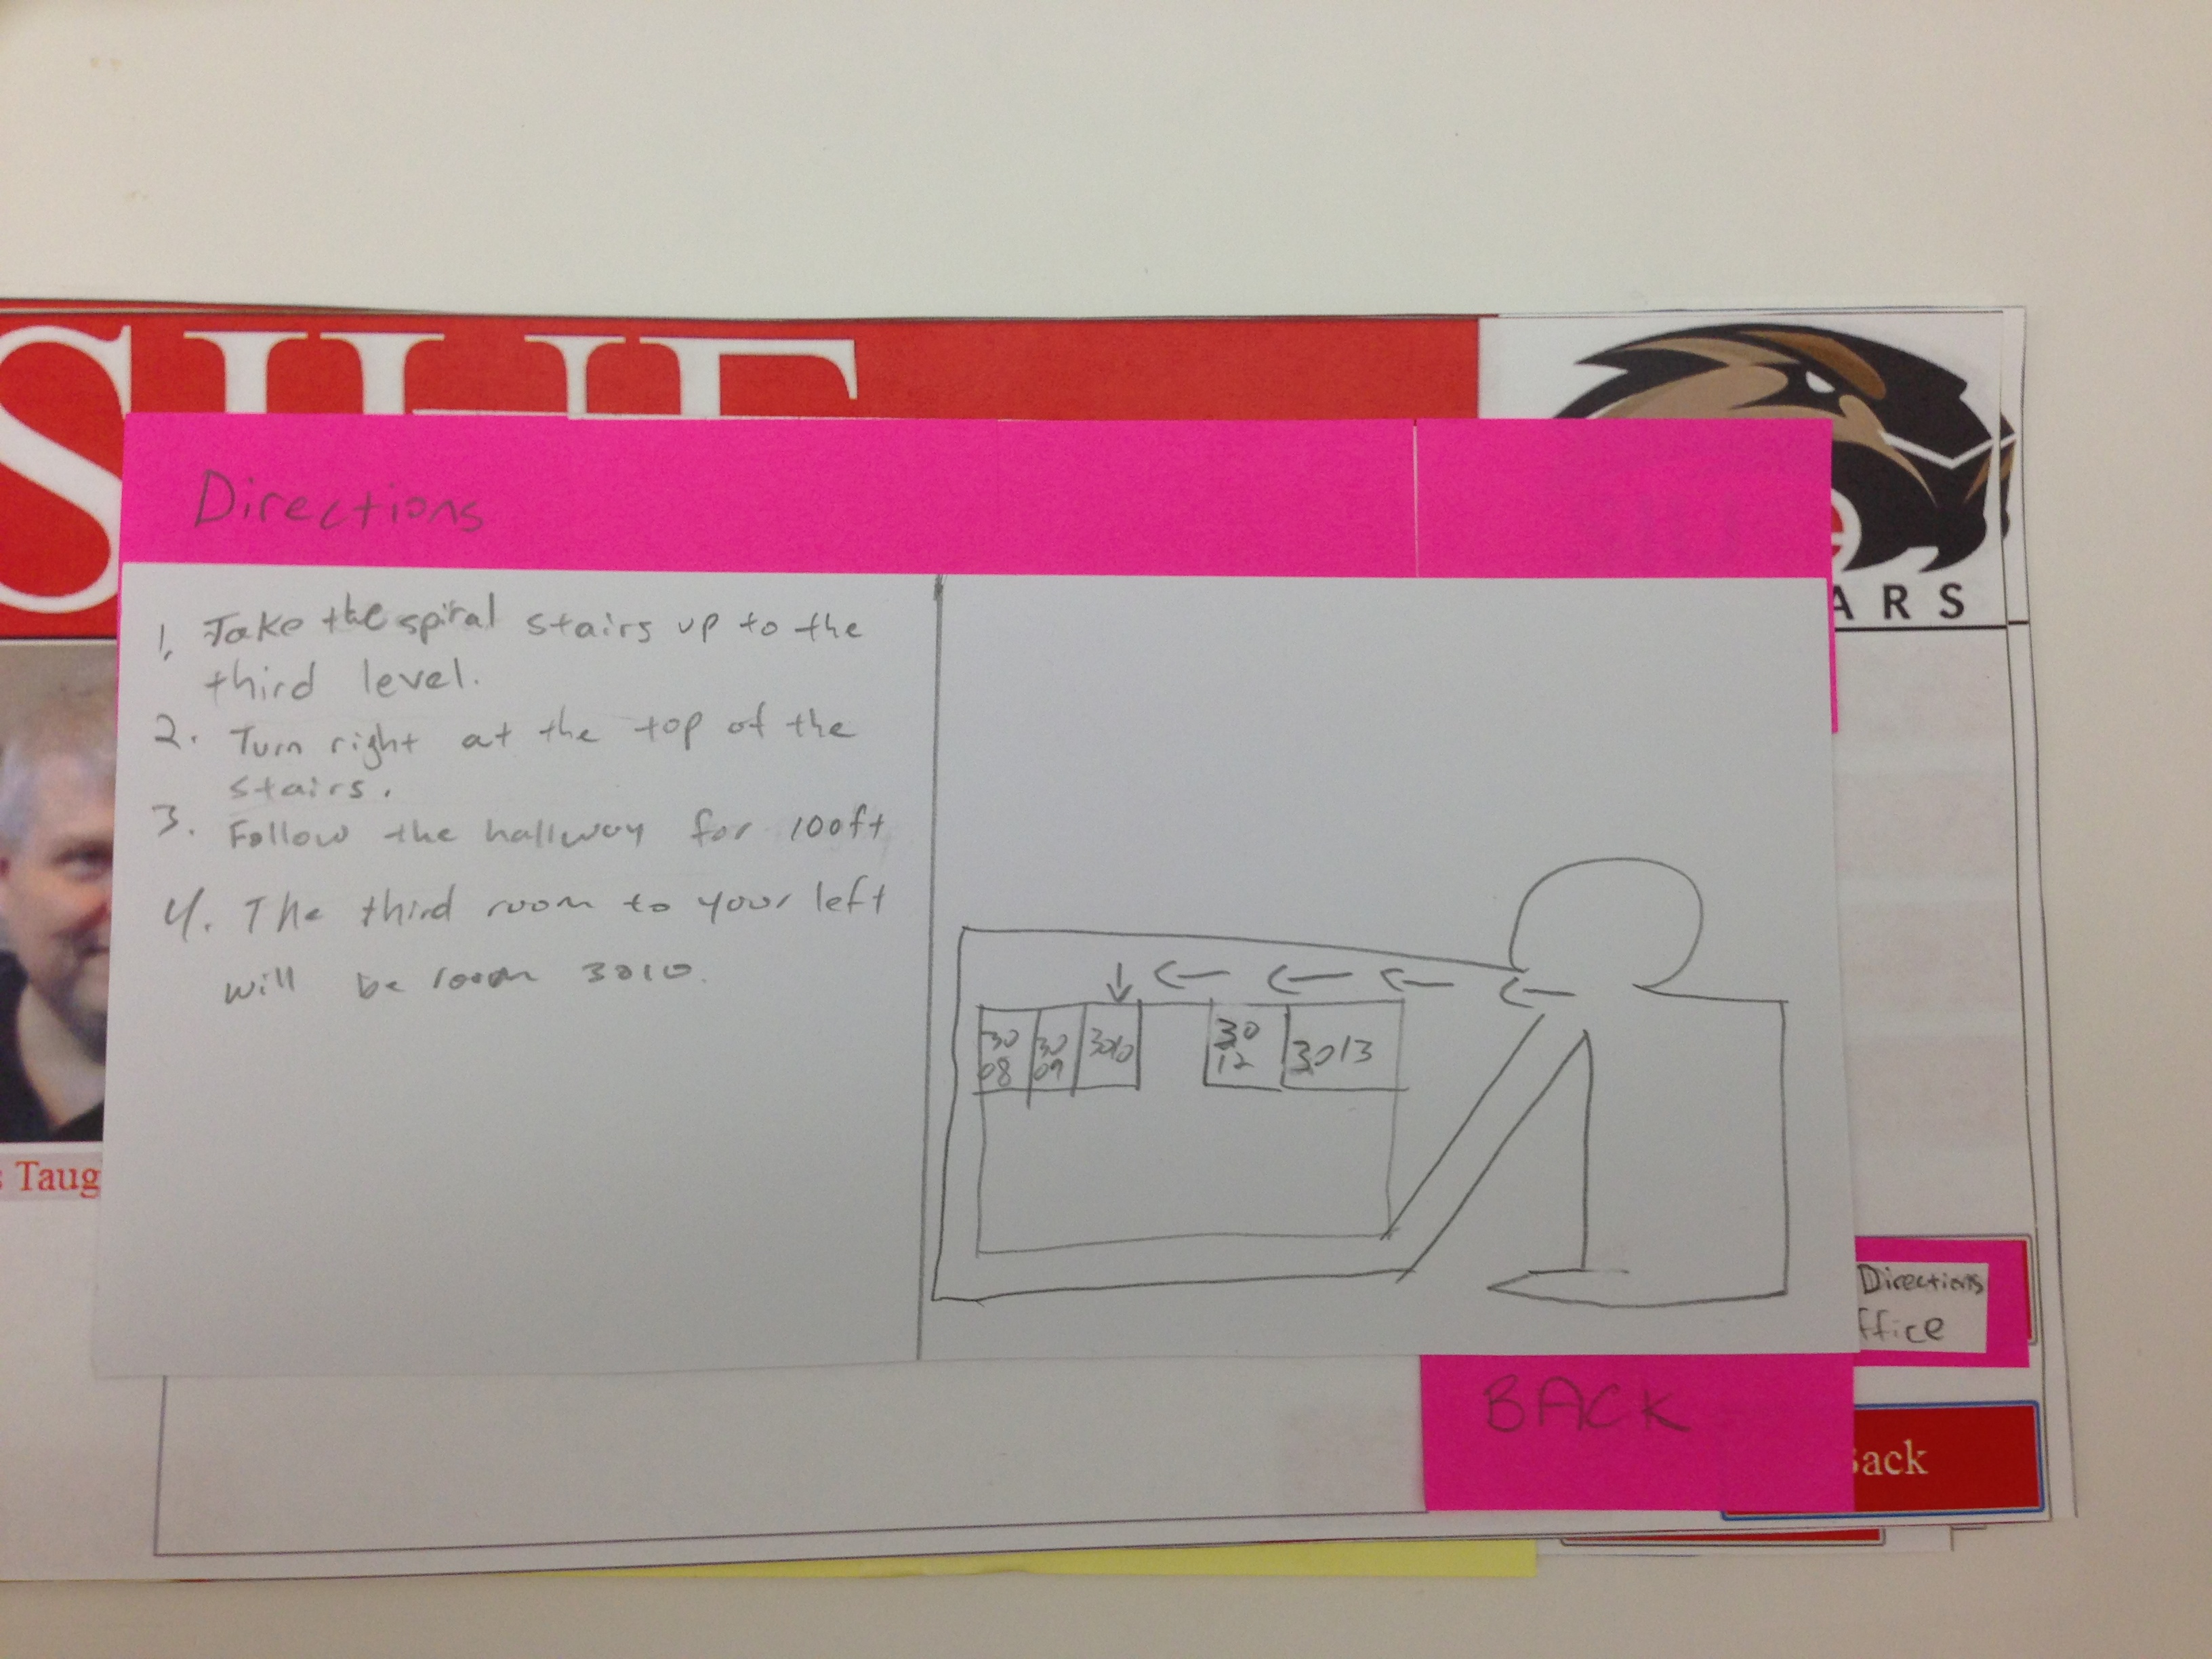 Directions
1. Take the spiral stairs up to the
third level.
2. Turn right at the top of the
stairs.
3. Follow the hallway for 100ft
4. The third room to your left
will be room 3010.
30
08
30
09
3010
30
12
3013
ARS
s Taug
Directions
ffice
BACK
Back